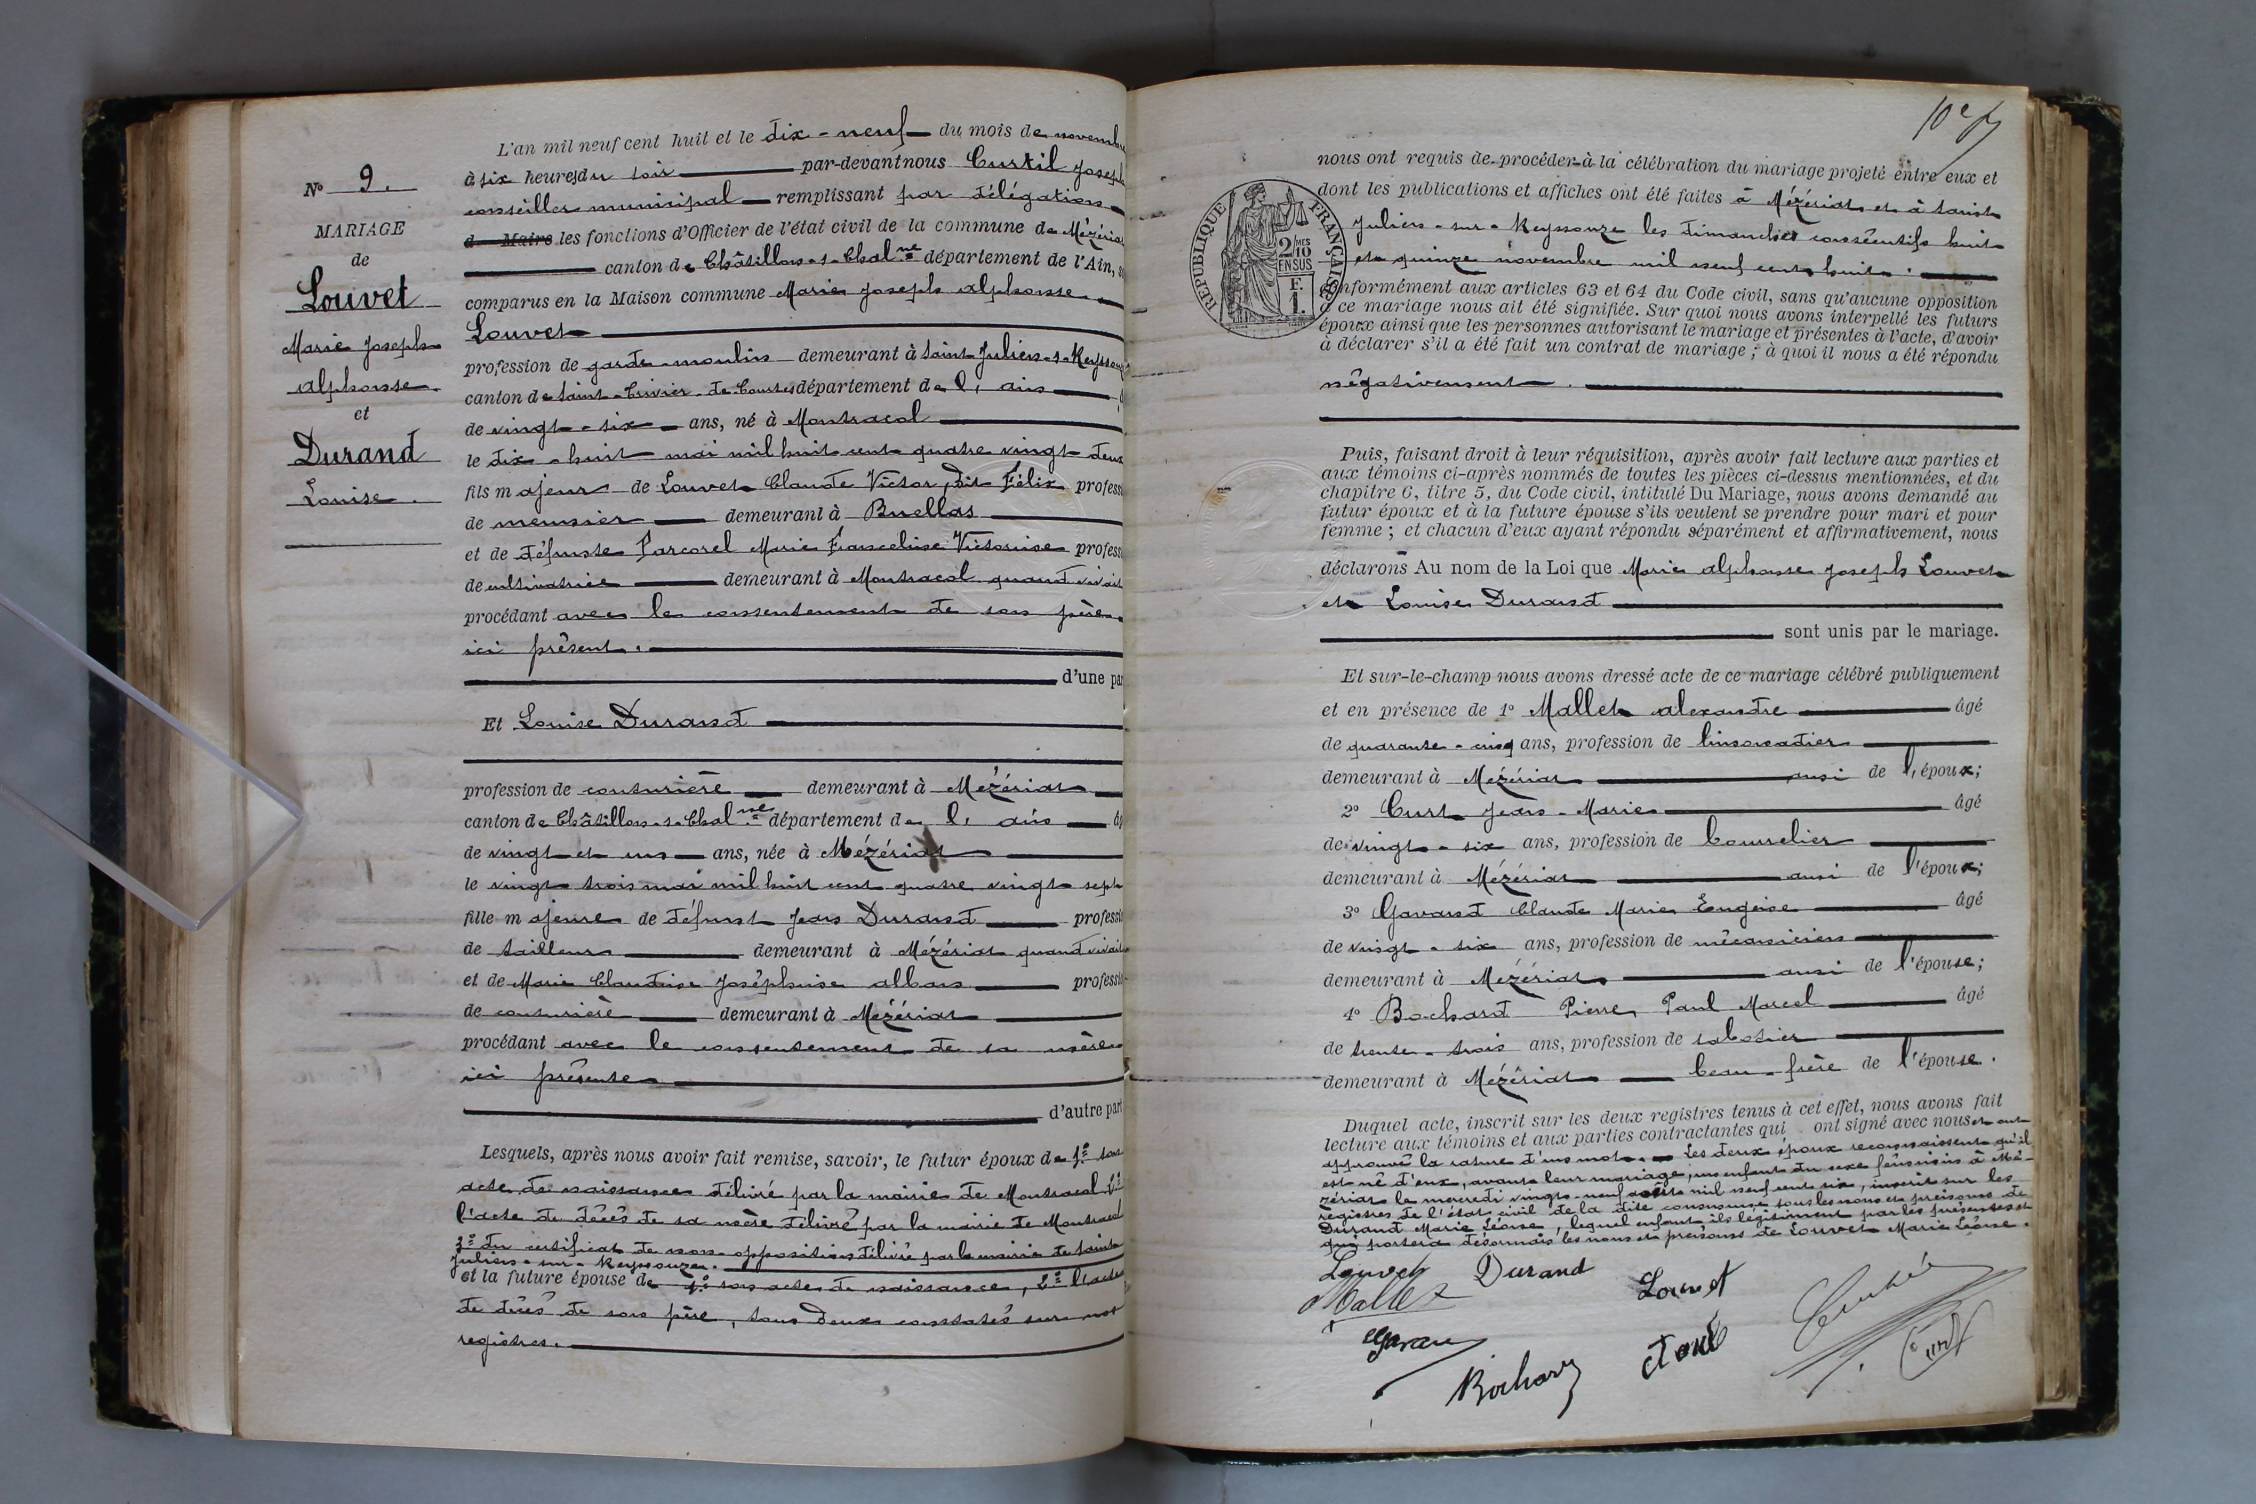 N° 9.
MARIAGE
de
Louvet
Marie Joseph
alphonse
et
Durand
Louise.
L'an mil neuf cent huit et le dix-neuf du mois de novembre
à six heures du soir par-devant nous Curtil Joseph
conseiller municipal remplissant par délégation
d Maire les fonctions d'Officier de l'état civil de la commune de Mézériat
canton de Châtillon-s-Chal.ne département de l'Ain,
comparus en la Maison commune Marie Joseph alphonse
Louvet
profession de garde-moulin demeurant à Saint-Julien-s-Reyssouze
canton de Saint-Trivier-de-Courtes département de l'ain
de vingt-six ans, né à Montracol
le dix-huit mai mil huit cent quatre vingt deux
fils majeur de Louvet Claude Victor, dit Félix profess
de meunier demeurant à Buellas
et de défunte Parcorel Marie Franceline Victorine profess
de cultivatrice demeurant à Montracol quand vivait
procédant avec le consentement de son père
ici présent.
d'une par
Et Louise Durand
profession de couturière demeurant à Mézériat
canton de Châtillon-s-Chal.ne département de l'ain
de vingt et un ans, née à Mézériat
le vingt trois mai mil huit cent quatre vingt sept
fille majeure de défunt Jean Durand professi
de tailleur demeurant à Mézériat quand vivait
et de Marie Claudine Joséphine alban professi
de couturière demeurant à Mézériat
procédant avec le consentement de sa mère
ici présente
d'autre part
Lesquels, après nous avoir fait remise, savoir, le futur époux de 1° son
acte de naissance délivré par la mairie de Montracol 2°
l'acte de décès de sa mère délivré par la mairie de Montracol
3° du certificat de non-opposition délivré par la mairie de Saint
Julien-sur-Reyssouze.
et la future épouse de 1° son acte de naissance, 2° l'acte
de décès de son père, tous deux constatés sur nos
registres.
REPUBLIQUE FRANÇAISE
2/10 MES
EN SUS
F.
1.
nous ont requis de procéder à la célébration du mariage projeté entre eux et
dont les publications et affiches ont été faites à Mézériat et à Saint
Julien-sur-Reyssouze les dimanches consécutifs huit
et quinze novembre mil neuf cent huit.
conformément aux articles 63 et 64 du Code civil, sans qu'aucune opposition
à ce mariage nous ait été signifiée. Sur quoi nous avons interpellé les futurs
époux ainsi que les personnes autorisant le mariage et présentes à l'acte, d'avoir
à déclarer s'il a été fait un contrat de mariage; à quoi il nous a été répondu
négativement.
Puis, faisant droit à leur réquisition, après avoir fait lecture aux parties et
aux témoins ci-après nommés de toutes les pièces ci-dessus mentionnées, et du
chapitre 6, titre 5, du Code civil, intitulé Du Mariage, nous avons demandé au
futur époux et à la future épouse s'ils veulent se prendre pour mari et pour
femme; et chacun d'eux ayant répondu séparément et affirmativement, nous
déclarons Au nom de la Loi que Marie alphonse Joseph Louvet
et Louise Durand
sont unis par le mariage.
Et sur-le-champ nous avons dressé acte de ce mariage célébré publiquement
et en présence de 1° Mallet alexandre âgé
de quarante-cinq ans, profession de limonadier
demeurant à Mézériat ami de l'époux;
2° Curt Jean-Marie âgé
de vingt-six ans, profession de bourrelier
demeurant à Mézériat ami de l'époux;
3° Gavand Claude Marie Eugène âgé
de vingt-six ans, profession de mécanicien
demeurant à Mézériat ami de l'épouse;
4° Bochard Pierre Paul Marcel âgé
de trente-trois ans, profession de sabotier
demeurant à Mézériat beau-frère de l'épouse.
Duquel acte, inscrit sur les deux registres tenus à cet effet, nous avons fait
lecture aux témoins et aux parties contractantes qui ont signé avec nous et ont
approuvé la rature d'un mot. Les deux époux reconnaissent qu'il
est né d'eux, avant leur mariage, un enfant du sexe féminin à Mé-
zériat le mercredi vingt-neuf août mil neuf cent six, inscrit sur les
registres de l'état civil de la dite commune sous les nom et prénoms de
Durand Marie Léone, lequel enfant ils légitiment par les présentes et
qui portera désormais les nom et prénoms de Louvet Marie Léone.
Louvet Durand Louvet
Mallet
Gavan
Bochard
Curt